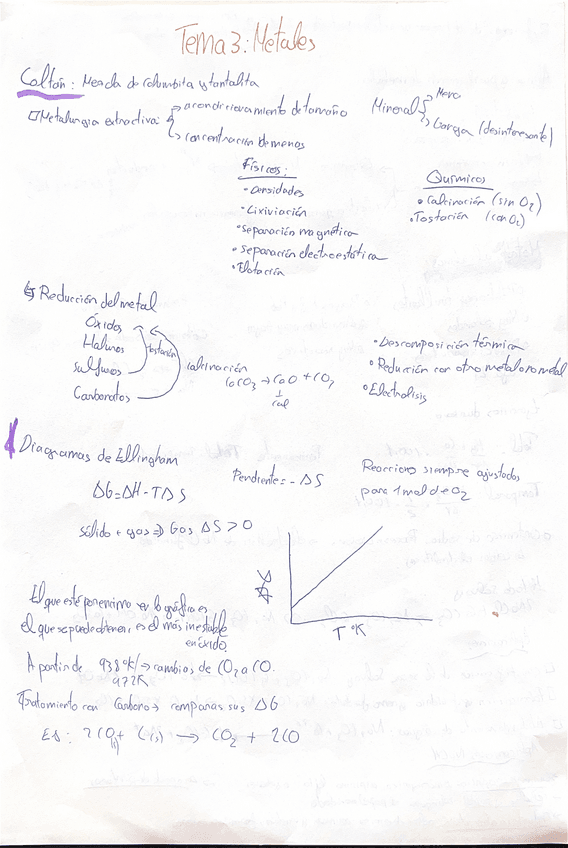 Tema 3: Metales
Coltán: Mezcla de columbita y tantalita
Metalurgia extractiva → acondicionamiento de tamaño
→ concentración de menas
Mineral → Mena
→ Ganga (desinteresante)
Físicos:
• Densidades
• Lixiviación
• Separación magnética
• Separación electroestática
• Flotación
Químicos
• Calcinación (sin O2)
• Tostación (con O2)
↳ Reducción del metal
Óxidos
Haluros
Sulfuros
Carbonatos
tostación
calcinación
CaCO3 → CaO + CO2
cal
• Descomposición térmica
• Reducción con otro metal o no metal
• Electrolisis
Diagramas de Ellingham
ΔG = ΔH - TΔS
Pendiente = - ΔS
Reacciones siempre ajustadas
para 1 mol de O2
sólido + gas ⇒ Gas ΔS > 0
T °K
El que esté por encima en la gráfica es
el que se puede obtener, es el más inestable
en óxido.
A partir de 938 °K → cambios de CO2 a CO.
972 K
Tratamiento con Carbono → comparas sus ΔG
+ C(s) → CO2 + 2CO